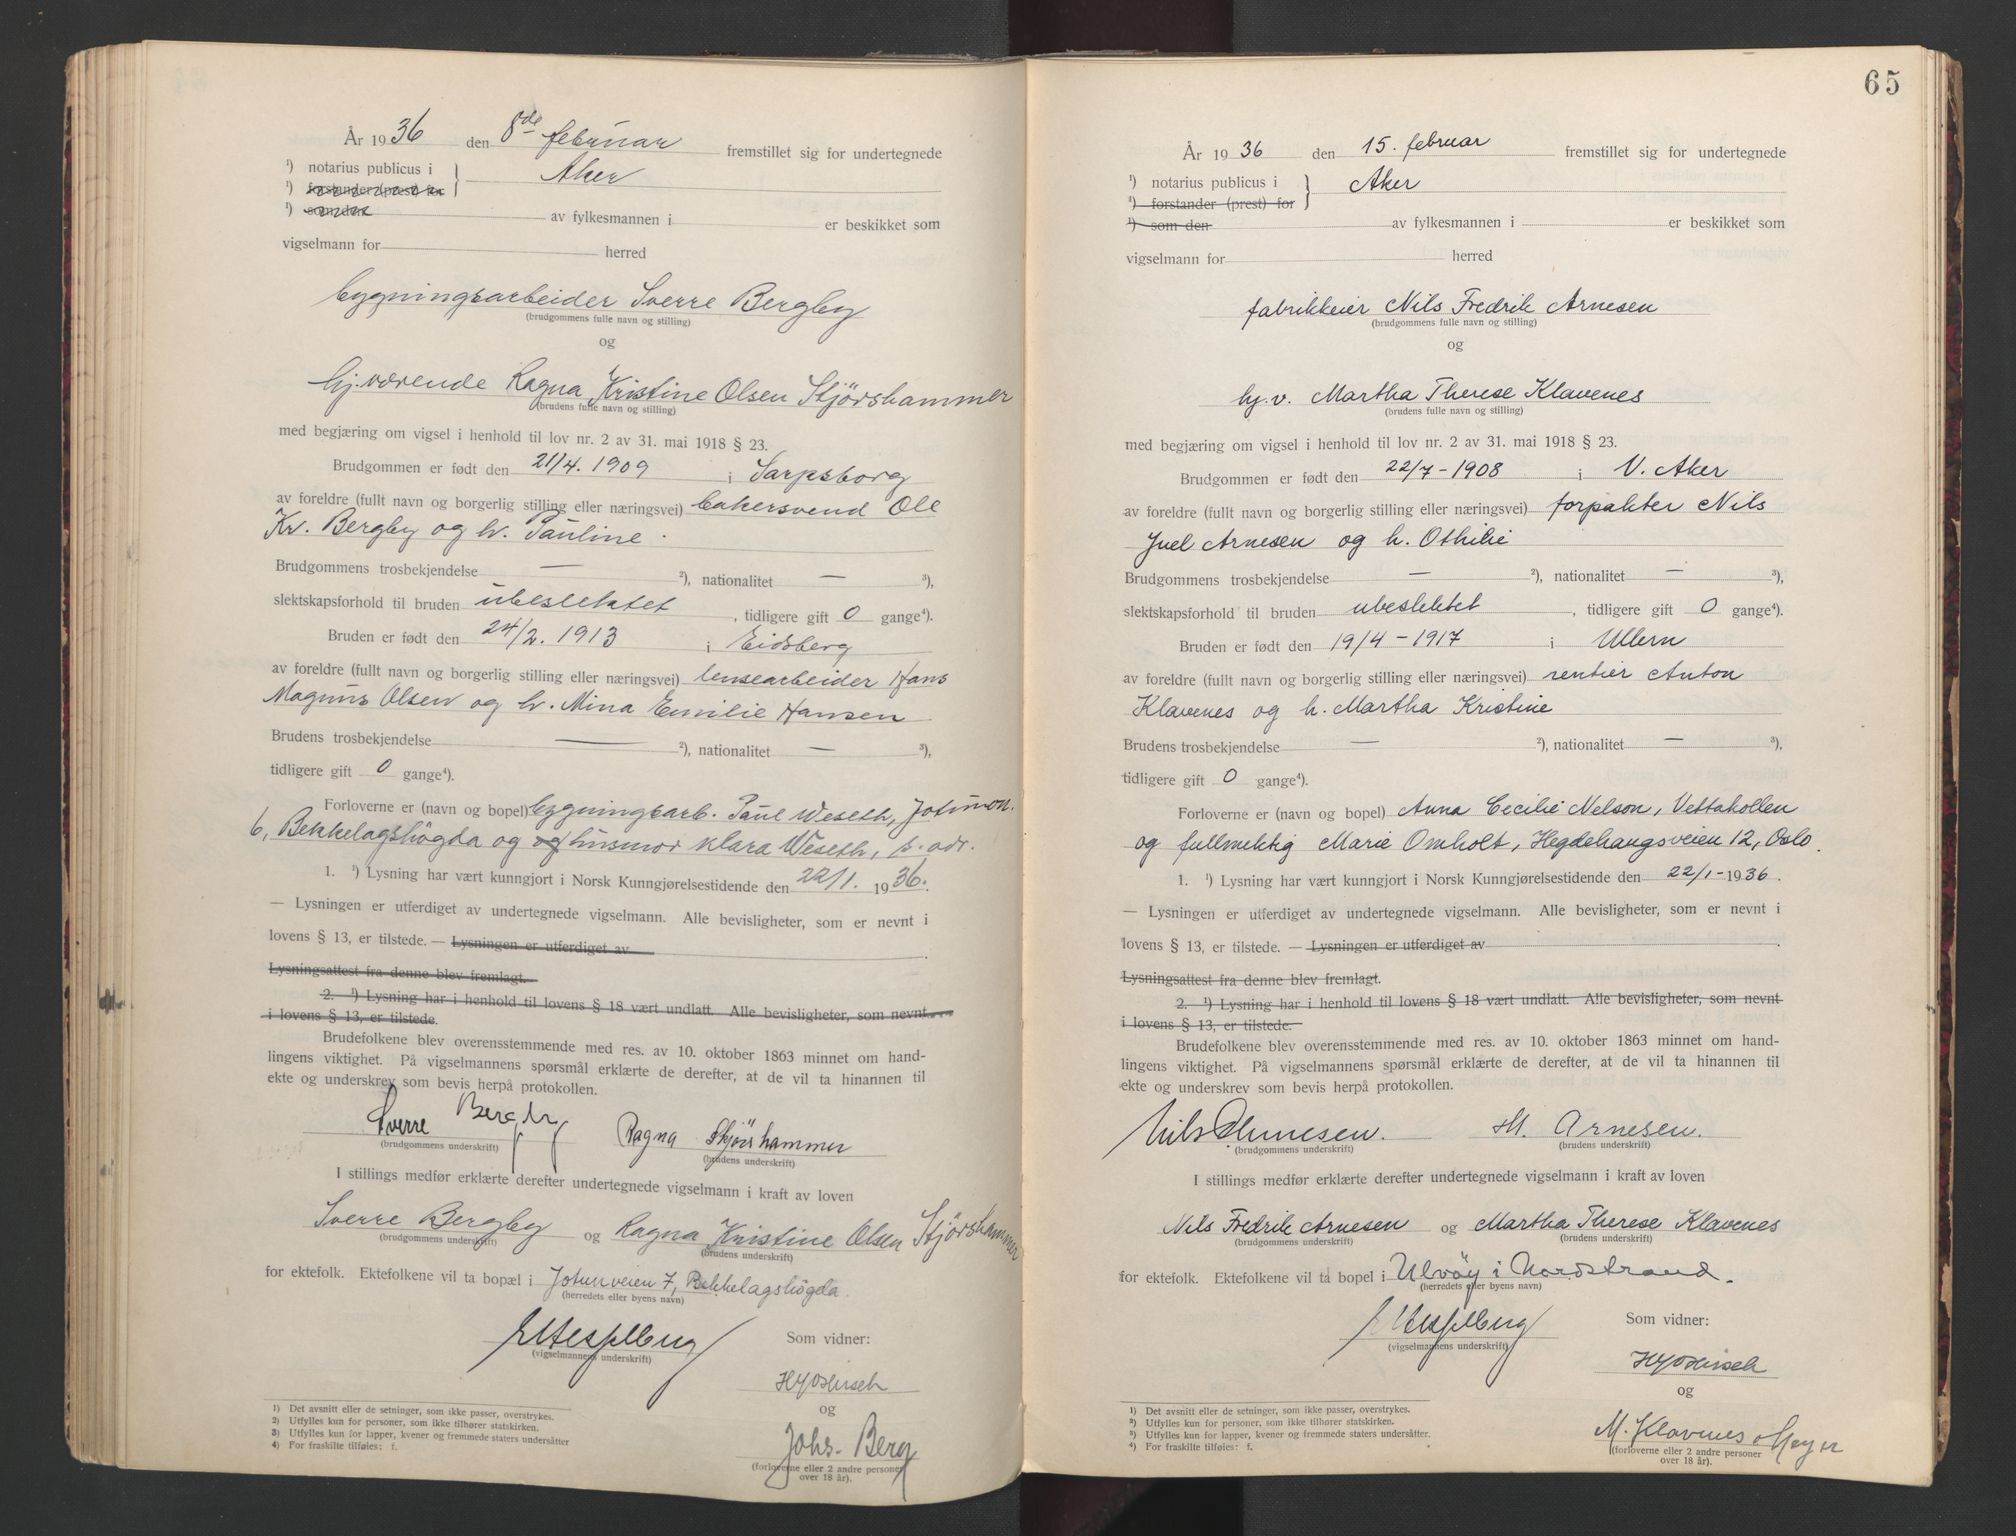 År 1936 den 8de februar fremstillet sig for undertegnede
¹) notarius publicus i } Aker
¹) forstander (prest) for
¹) som den av fylkesmannen i er beskikket som
vigselmann for herred
bygningsarbeider Sverre Bergby
(brudgommens fulle navn og stilling)
og
hj.værende Ragna Kristine Olsen Stjørshammer
(brudens fulle navn og stilling)
med begjæring om vigsel i henhold til lov nr. 2 av 31. mai 1918 § 23.
Brudgommen er født den 21/4. 1909 i Sarpsborg
av foreldre (fullt navn og borgerlig stilling eller næringsvei) bakersvend Ole
Kr. Bergby og h. Pauline.
Brudgommens trosbekjendelse — ²), nationalitet — ³),
slektskapsforhold til bruden ubeslektet, tidligere gift 0 gange⁴).
Bruden er født den 24/2. 1913 i Eidsberg
av foreldre (fullt navn og borgerlig stilling eller næringsvei) lensearbeider Hans
Magnus Olsen og h. Mina Emilie Hansen
Brudens trosbekjendelse — ²), nationalitet — ³),
tidligere gift 0 gange⁴).
Forloverne er (navn og bopel) bygningsarb. Paul Weseth, Jotunvn.
6, Bekkelagshøgda og og husmor Klara Weseth, s. adr.
1. ¹) Lysning har vært kunngjort i Norsk Kunngjørelsestidende den 22/1. 1936.
— Lysningen er utferdiget av undertegnede vigselmann. Alle bevisligheter, som er nevnt i
lovens § 13, er tilstede. — Lysningen er utferdiget av
Lysningsattest fra denne blev fremlagt.
2. ¹) Lysning har i henhold til lovens § 18 vært undlatt. Alle bevisligheter, som nevnt
i lovens § 13, er tilstede.
Brudefolkene blev overensstemmende med res. av 10. oktober 1863 minnet om hand-
lingens viktighet. På vigselmannens spørsmål erklærte de derefter, at de vil ta hinannen til
ekte og underskrev som bevis herpå protokollen.
Sverre Bergby Ragna Stjørshammer
(brudgommens underskrift) (brudens underskrift)
I stillings medfør erklærte derefter undertegnede vigselmann i kraft av loven
Sverre Bergby og Ragna Kristine Olsen Stjørshammer
(brudgommens underskrift) (brudens underskrift)
for ektefolk. Ektefolkene vil ta bopæl i Jotunveien 7, Bekkelagshøgda.
(herredets eller byens navn)
(vigselmannens underskrift) Som vidner:
og
Johs. Berg
(forloverne eller 2 andre personer
over 18 år).
1) Det avsnitt eller de setninger, som ikke passer, overstrykes.
2) Utfylles kun for personer, som ikke tilhører statskirken.
3) Utfylles kun for lapper, kvener og fremmede staters undersåtter
4) For fraskilte tilføies: f.
65
År 1936 den 15. februar fremstillet sig for undertegnede
¹) notarius publicus i } Aker
¹) forstander (prest) for
¹) som den av fylkesmannen i er beskikket som
vigselmann for herred
fabrikkeier Nils Fredrik Arnesen
(brudgommens fulle navn og stilling)
og
hj.v. Martha Therese Klavenes
(brudens fulle navn og stilling)
med begjæring om vigsel i henhold til lov nr. 2 av 31. mai 1918 § 23.
Brudgommen er født den 22/7 - 1908 i V. Aker
av foreldre (fullt navn og borgerlig stilling eller næringsvei) forpakter Nils
Juel Arnesen og h. Othilie
Brudgommens trosbekjendelse — ²), nationalitet — ³),
slektskapsforhold til bruden ubeslektet, tidligere gift 0 gange⁴).
Bruden er født den 19/4 - 1917 i Ullern
av foreldre (fullt navn og borgerlig stilling eller næringsvei) rentier Anton
Klavenes og h. Martha Kristine
Brudens trosbekjendelse — ²), nationalitet — ³),
tidligere gift 0 gange⁴).
Forloverne er (navn og bopel) Anna Cecilie Nelson, Vettakollen
og fullmektig Marie Omholt, Hegdehaugsveien 12, Oslo.
1. ¹) Lysning har vært kunngjort i Norsk Kunngjørelsestidende den 22/1 - 1936.
— Lysningen er utferdiget av undertegnede vigselmann. Alle bevisligheter, som er nevnt i
lovens § 13, er tilstede. — Lysningen er utferdiget av
Lysningsattest fra denne blev fremlagt.
2. ¹) Lysning har i henhold til lovens § 18 vært undlatt. Alle bevisligheter, som nevnt
i lovens § 13, er tilstede.
Brudefolkene blev overensstemmende med res. av 10. oktober 1863 minnet om hand-
lingens viktighet. På vigselmannens spørsmål erklærte de derefter, at de vil ta hinannen til
ekte og underskrev som bevis herpå protokollen.
Nils Arnesen. M. Arnesen.
(brudgommens underskrift) (brudens underskrift)
I stillings medfør erklærte derefter undertegnede vigselmann i kraft av loven
Nils Fredrik Arnesen og Martha Therese Klavenes
(brudgommens underskrift) (brudens underskrift)
for ektefolk. Ektefolkene vil ta bopel i Ulvøy i Nordstrand.
(herredets eller byens navn)
(vigselmannens underskrift) Som vidner:
og
M. Klavenes Meyer
(forloverne eller 2 andre personer
over 18 år).
1) Det avsnitt eller de setninger, som ikke passer, overstrykes.
2) Utfylles kun for personer, som ikke tilhører statskirken.
3) Utfylles kun for lapper, kvener og fremmede staters undersåtter.
4) For fraskilte tilføies: f.